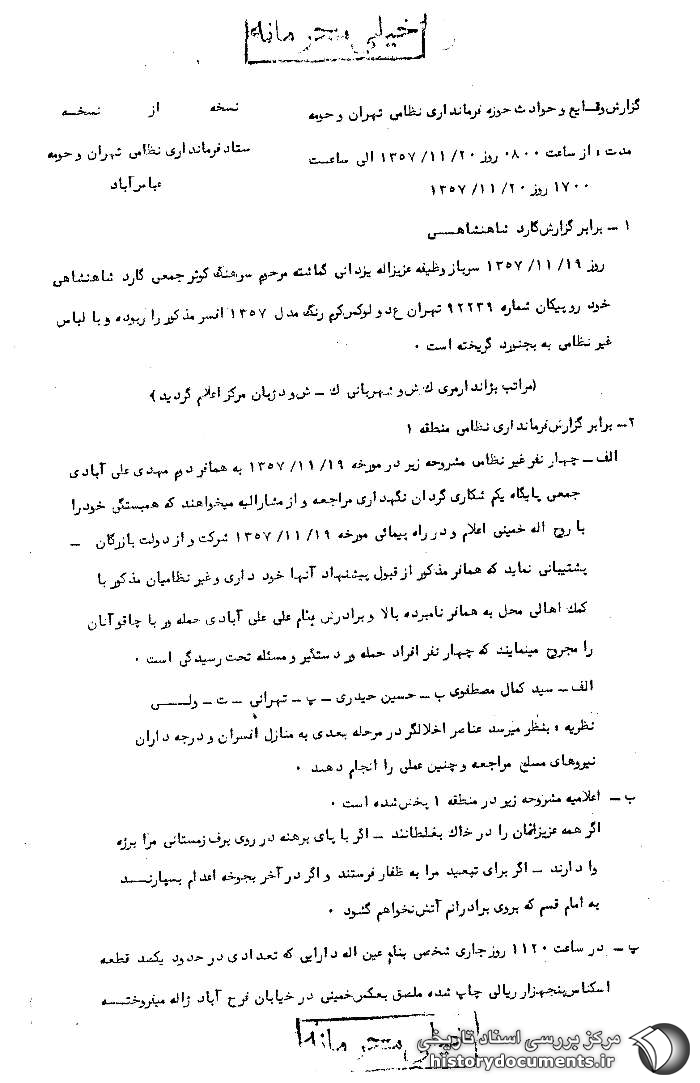 خیلی محرمانه
گزارش وقایع و حوادث حوزه فرمانداری نظامی تهران و حومه
نسخه از نسخه
مدت : از ساعت ۰۸۰۰ روز ۲۰/ ۱۱/ ۱۳۵۷ الی ساعت
ستاد فرمانداری نظامی تهران و حومه
۱۷۰۰ روز ۲۰/ ۱۱/ ۱۳۵۷
عباس‌آباد
۱ ــ برابر گزارش گارد شاهنشاهــی
روز ۱۹/ ۱۱/ ۱۳۵۷ سرباز وظیفه عزیزاله یزدانی گماشته مرحوم سرهنگ کوثر جمعی گارد شاهنشاهی
خود رو پیکان شماره ۹۲۲۳۹ تهران ع د و لوکس کرم رنگ مدل ۱۳۵۷ افسر مذکور را ربوده و با لباس
غیر نظامی به بجنورد گریخته است ۰
(مراتب بژاندارمری ك ش و شهربانی ك ــ ش و دژبان مرکز اعلام گردید )
۲ــ برابر گزارش فرمانداری نظامی منطقه ۱
الف ــ چهار نفر غیر نظامی مشروحه زیر در مورخه ۱۹/ ۱۱/ ۱۳۵۷ به همافر دوم مهدی علی آبادی
جمعی پایگاه یکم شکاری گردان نگهداری مراجعه و از مشارالیه میخواهند که همبستگی خود را
با روح اله خمینی اعلام و در راه پیمائی مورخه ۱۹/ ۱۱/ ۱۳۵۷ شرکت و از دولت بازرگان ــ
پشتیبانی نماید که همافر مذکور از قبول پیشنهاد آنها خود داری و غیر نظامیان مذکور با
کمك اهالی محل به همافر نامبرده بالا و برادرش بنام علی علی آبادی حمله ور با چاقو آنان
را مجروح مینمایند که چهار نفر افراد حمله ور دستگیر و مسئله تحت رسیدگی است ۰
الف ــ سید کمال مصطفوی ب ــ حسین حیدری ــ پ ــ تهرانی ــ ت ــ ولـــی
نظریه : بنظر میرسد عناصر اخلالگر در مرحله بعدی به منازل افسران و درجه داران
نیروهای مسلح مراجعه و چنین عملی را انجام دهند ۰
ب ــ اعلامیه مشروحه زیر در منطقه ۱ پخش شده است ۰
اگر همه عزیزانمان را در خاك بغلطانند ــ اگر با پای برهنه در روی برف زمستانی مرا برژه
وا دارند ــ اگر برای تبعید مرا به ظفار فرستند و اگر در آخر بجوخه اعدام بسپارنــد
به امام قسم که بروی برادرانم آتش نخواهم گشود ۰
پ ــ در ساعت ۱۱۲۰ روز جاری شخصی بنام عین اله دارایی که تعدادی در حدود یکصد قطعه
اسکناس پنجهزار ریالی چاپ شده ملصق بعکس خمینی در خیابان فرح آباد ژاله میفروختــه
خیلی محرمانه
مرکز بررسی اسناد تاریخی
historydocuments.ir